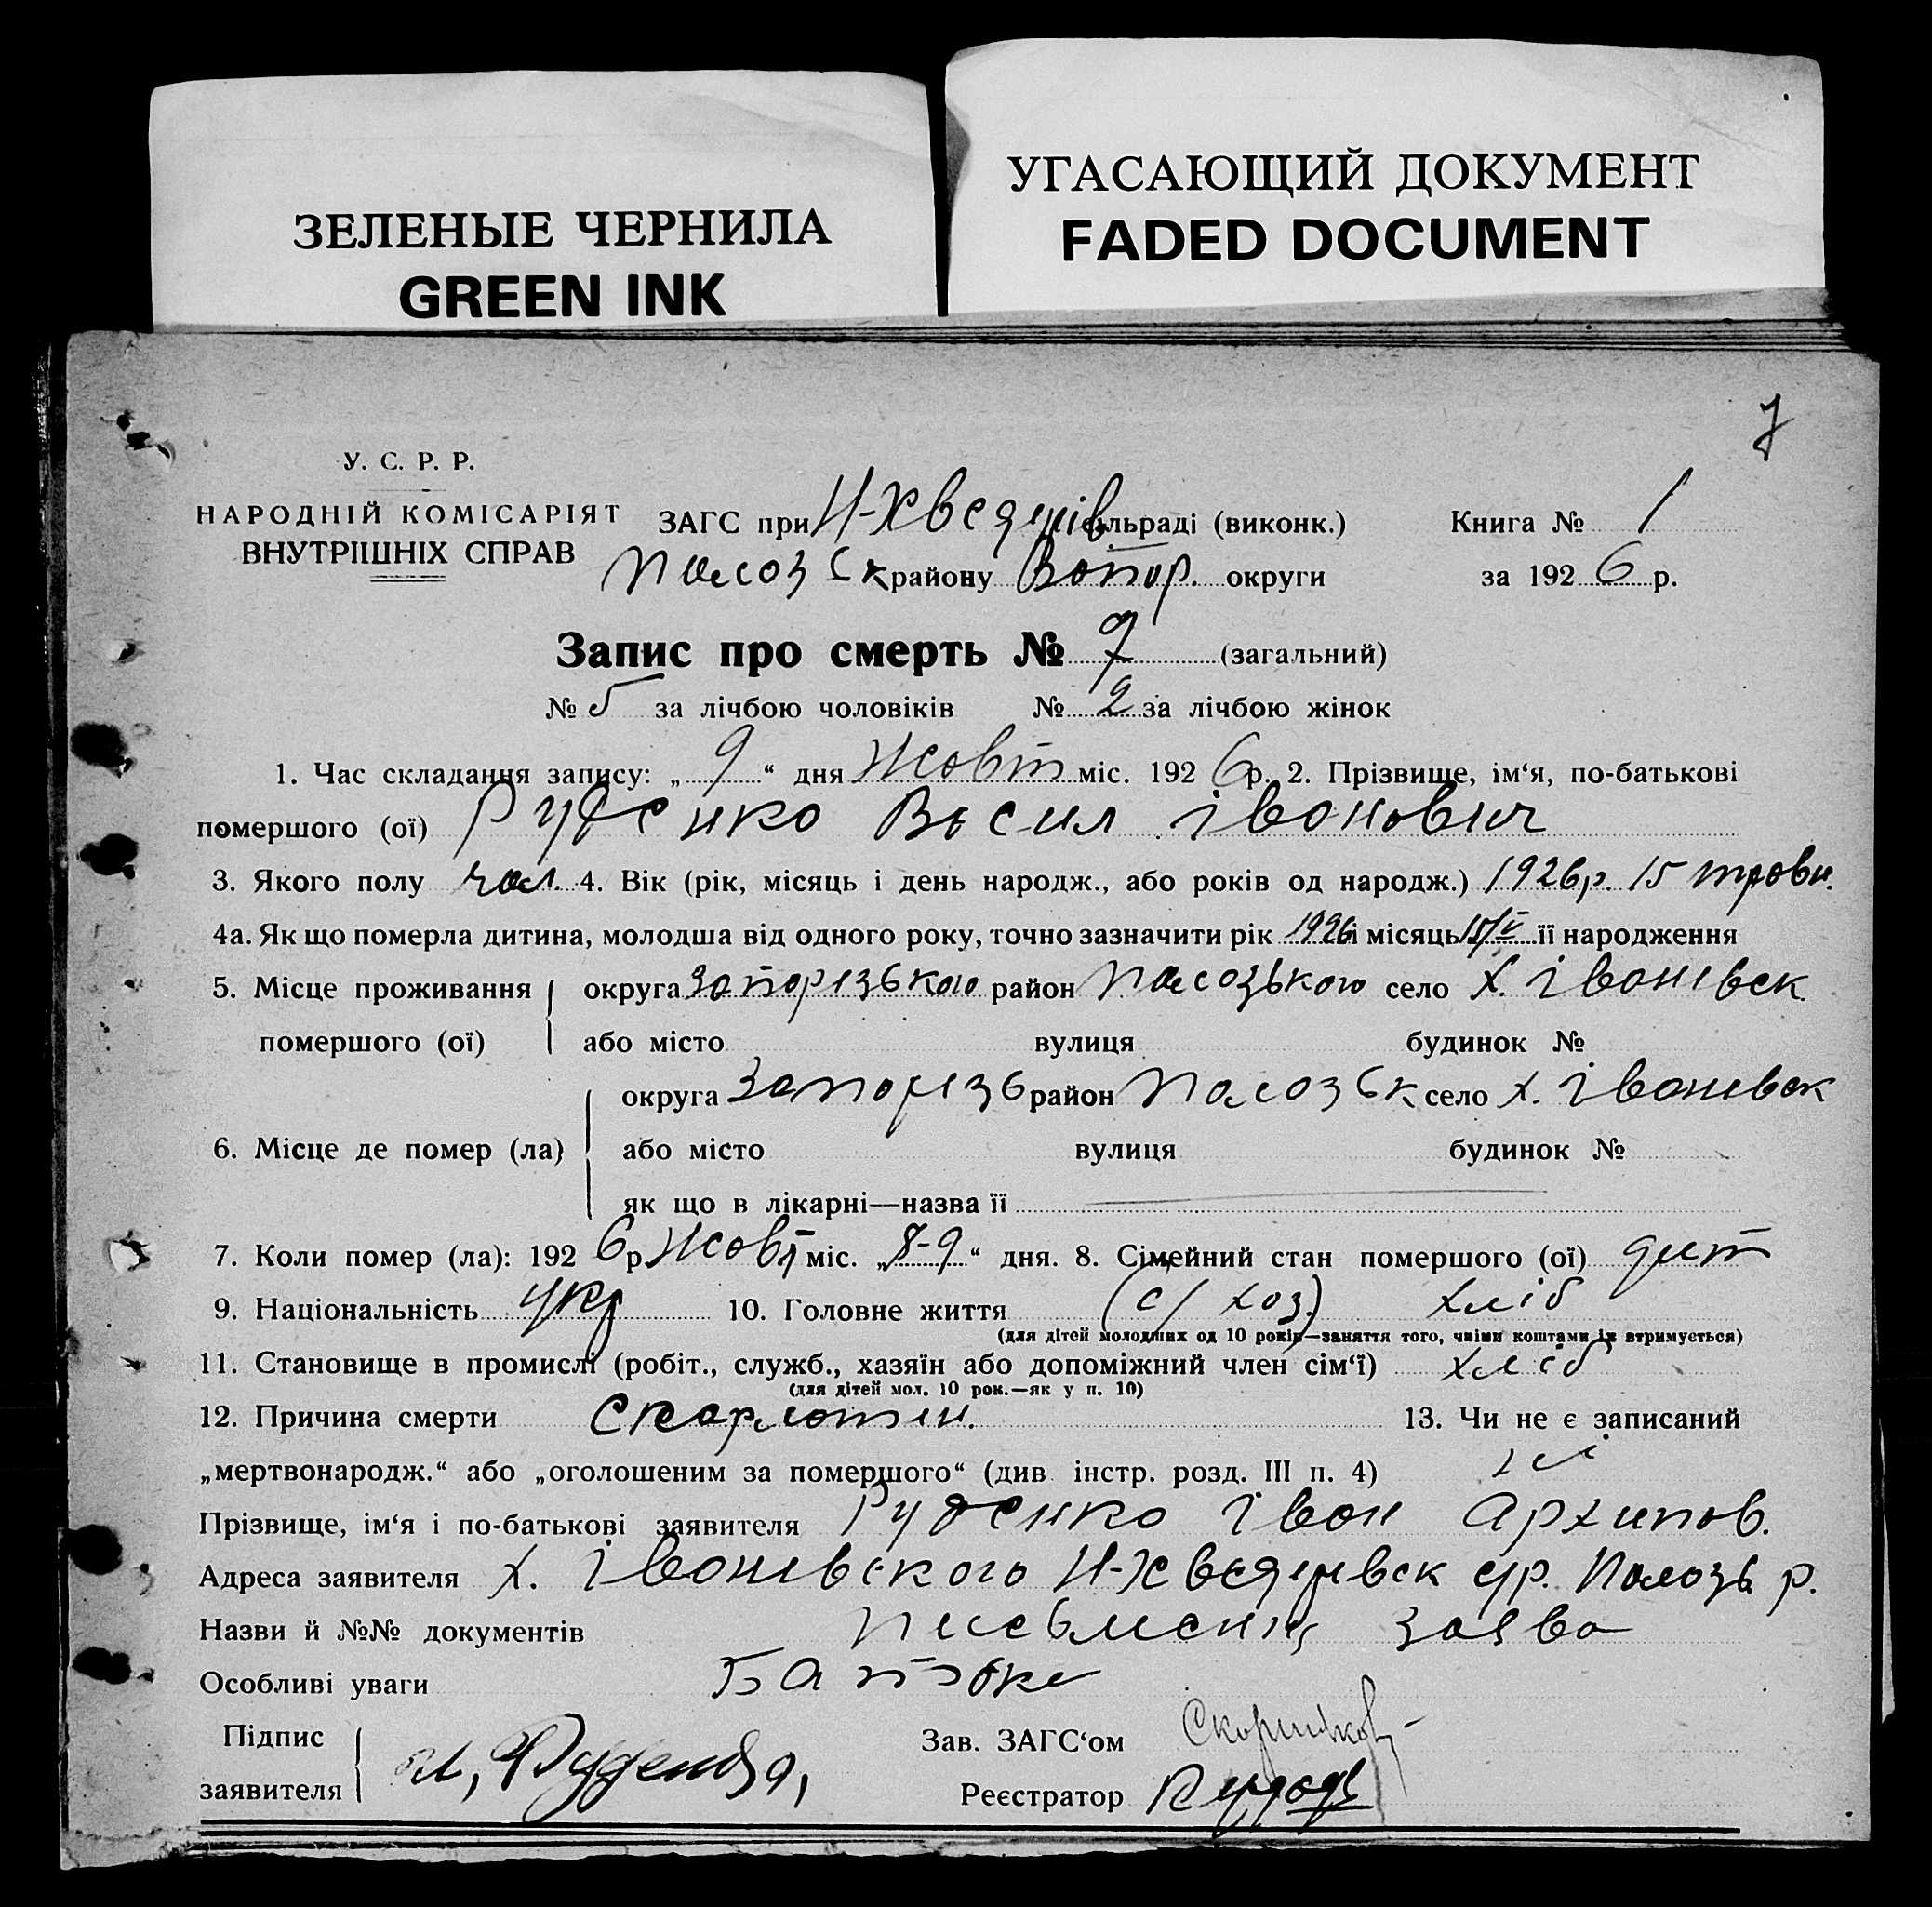 ЗЕЛЕНЫЕ ЧЕРНИЛА
GREEN INK
УГАСАЮЩИЙ ДОКУМЕНТ
FADED DOCUMENT
7
У. С. Р. Р.
НАРОДНІЙ КОМІСАРІЯТ
ВНУТРІШНІХ СПРАВ
ЗАГС при сільраді (виконк.) Книга № 1
району Запор. округи за 1926 р.
Запис про смерть № 7 (загальний)
№ 5 за лічбою чоловіків № 2 за лічбою жінок
1. Час складання запису: „ 9 “ дня Жовт міс. 1926 р. 2. Прізвище, ім‘я, по-батькові
помершого (ої) Руденко Васил Іванович
3. Якого полу чол. 4. Вік (рік, місяць і день народж., або років од народж.) 1926 р. 15 травн.
4а. Як що померла дитина, молодша від одного року, точно зазначити рік 1926 і місяць 15/V її народження
5. Місце проживання округа Запорізького район Пологзького село х. Іванівск
помершого (ої) або місто вулиця будинок №
округа Запорізь район село х. Іванівск
6. Місце де помер (ла) або місто вулиця будинок №
як що в лікарні—назва її
7. Коли помер (ла): 1926 р. Жовт міс. „ 8-9 “ дня. 8. Сімейний стан помершого (ої) дит
9. Національність укр 10. Головне життя (с/хоз.) хліб
(для дітей молодших од 10 років—заняття того, чиїми коштами їх втримується)
11. Становище в промислі (робіт., служб., хазяїн або допоміжний член сім‘ї) хліб
(для дітей мол. 10 рок.—як у п. 10)
12. Причина смерти Скарлотин. 13. Чи не є записаний
„мертвонародж.“ або „оголошеним за помершого“ (див. інстр. розд. III п. 4)
Прізвище, ім‘я і по-батькові заявителя Руденко Іван Архипов.
Адреса заявителя х. Іванівского р.
Назви й №№ документів письмення заява
Особливі уваги Батьке
Підпис Зав. ЗАГС‘ом
заявителя Реєстратор